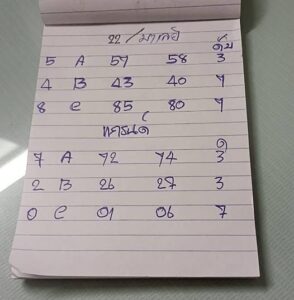 22/มกาคม
ดับ
5 A 57 58 3
4 B 43 40 7
8 C 85 80 7
เทรนด์
ดิ
7 A 72 74 3
2 B 26 27 3
0 C 01 06 7